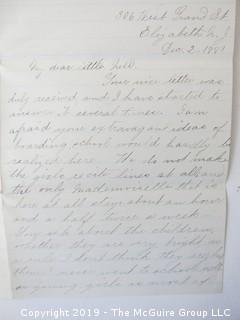 306 West Grand St
Elizabeth N. J.
Dec. 2. 1881
My dear little Nell.
Your nice letter was
duly received and I have started to
answer it several times. I am
afraid your extravagant ideas of
boarding school would hardly be
realized here. We do not make
the girls recite lines at all and
the only Mademoiselle that is
here at all stays about an hour
and a half twice a week.
You ask about the children,
whether they are very bright
I don't think they
never went to school
Copyright 2019 - The McGuire Group LLC